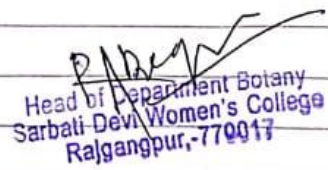 Head of Department Botany
Sarbati Devi Women's College
Rajgangpur,-770017